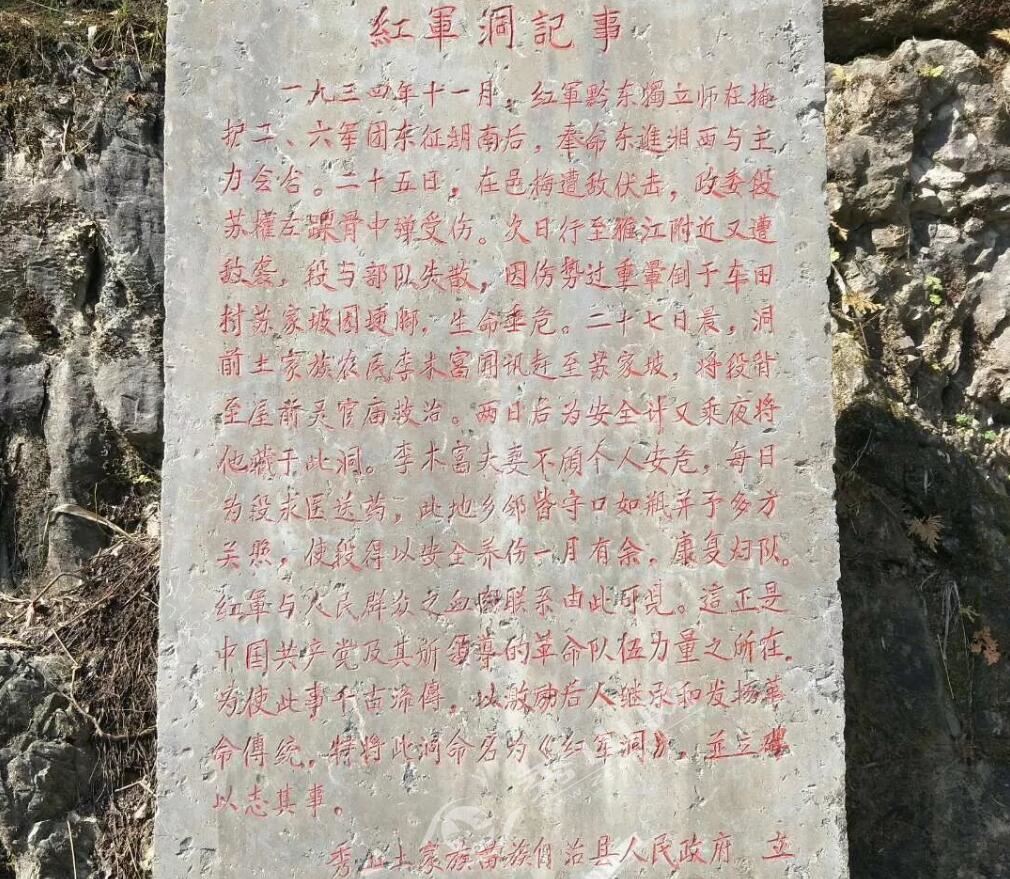 紅軍洞記事
一九三四年十一月，红軍黔东獨立师在掩
护二、六军团东征湖南后，奉命东進湘西与主
力会合。二十五日，在邑梅遭敌伏击，政委段
苏權左踝骨中弹受伤。次日行至雅江附近又遭
敌袭，段与部队失散，因伤势过重暈倒于车田
村苏家坡田埂脚，生命垂危。二十七日晨，洞
前土家族农民李木富闻讯赶至苏家坡，将段背
至崖前灵官庙救治。两日后为安全计又乘夜将
他藏于此洞。李木富夫妻不顾个人安危，每日
为段求医送药，此地乡邻皆守口如瓶并予多方
关照，使段得以安全养伤一月有余，康复归队。
红軍与人民群众之血肉联系由此可見。這正是
中国共产党及其所领導的革命队伍力量之所在。
为使此事千古流傳，以激励后人继承和发扬革
命傳统，特将此洞命名为《红军洞》，並立碑
以志其事。
秀山土家族苗族自治县人民政府 立